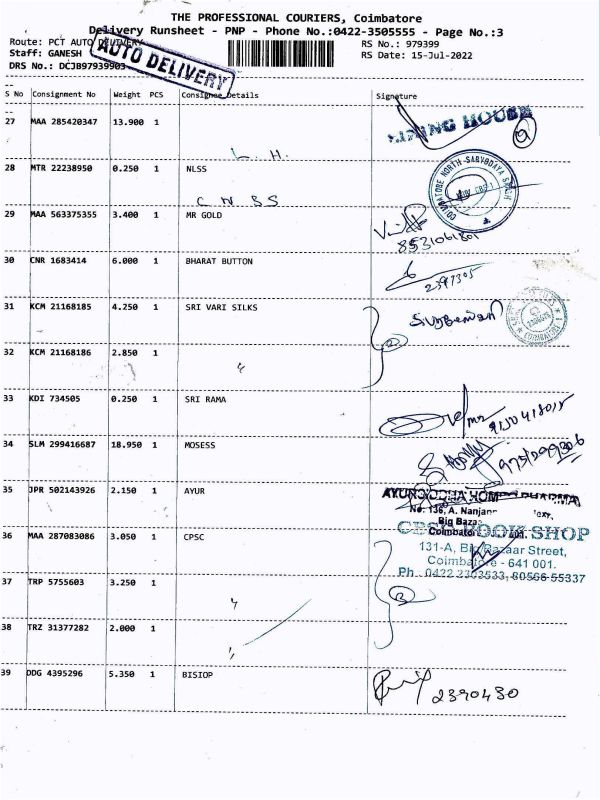 THE PROFESSIONAL COURIERS, Coimbatore
Delivery Runsheet - PNP - Phone No.:0422-3505555 - Page No.:3
Route: PCT AUTO DELIVERY
RS No.: 979399
Staff: GANESH
RS Date: 15-Jul-2022
DRS No.: DCJB97939903
AUTO DELIVERY
S No Consignment No Weight PCS Consignee Details Signature
27 MAA 285420347 13.900 1
L. H.
28 MTR 22238950 0.250 1 NLSS
C N S S
29 MAA 563375355 3.400 1 MR GOLD
30 CNR 1683414 6.000 1 BHARAT BUTTON
2397305
31 KCM 21168185 4.250 1 SRI VARI SILKS
32 KCM 21168186 2.850 1 "
33 KDI 734505 0.250 1 SRI RAMA
34 SLM 299416687 18.950 1 MOSESS
35 JPR 502143926 2.150 1 AYUR
No: 136, A. Nanjappa
Big Bazaar
36 MAA 287083086 3.050 1 CPSC
CPSC BOOK SHOP
131-A, Big Bazaar Street,
Coimbatore - 641 001.
Ph : 0422 2303533, 80566 55337
37 TRP 5755603 3.250 1 "
38 TRZ 31377282 2.000 1 "
39 DDG 4395296 5.350 1 BISIOP
2390430